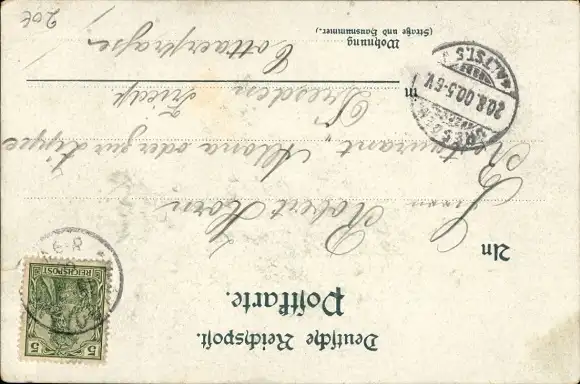 Deutsche Reichspost.
Postkarte.
5
REICHSPOST
An
Herrn Robert Horn
Restaurant "Altona oder zur Lippe
in Dresden
Friedr
Wohnung
(Straße und Hausnummer)
Cottaerstraße
DRESDEN
20.8.00.5-6V.
ALTST.5